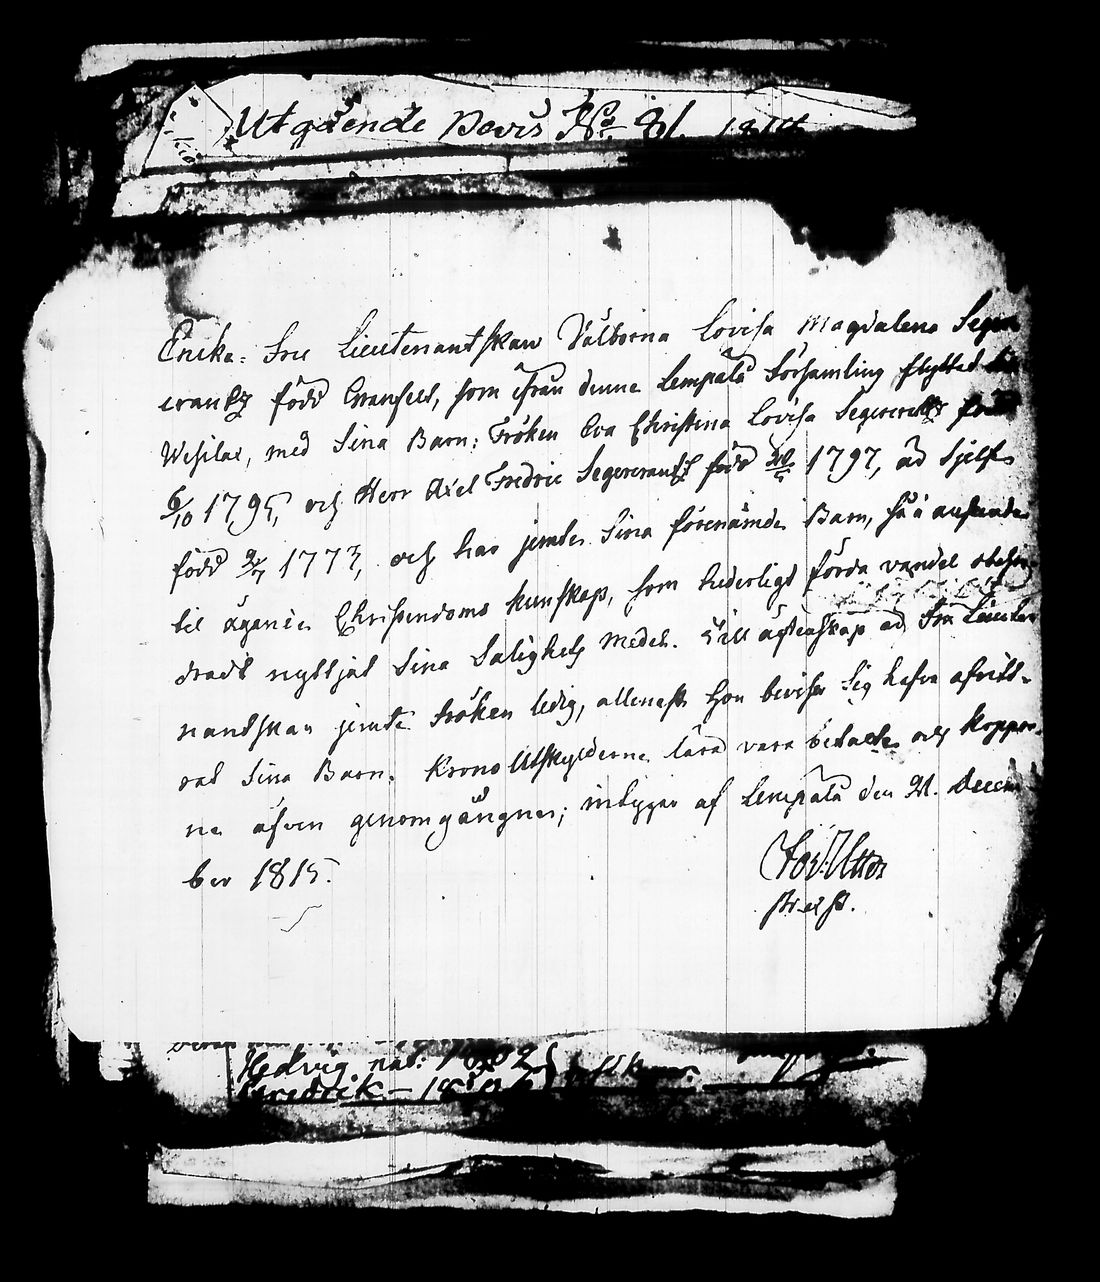 Utgående Bevis No 81. 1814
Enka: Fru Lieutenantskan Välborna Lovisa Magdalena Seger
crantz född Granfelt, som ifrån denne Lempälä Församling flyttad till
Wesilax, med Sina Barn: Fröken Eva Christina Lovisa Segercrantz född
6/10 1795, och Herr Axel Fredric Segercrantz född 1797, är Sjelf
född 2/7 1773, och har jemte Sina förenämde Barn, så i anseende
til ägande Christendoms kunskap, som hederligt förda vandel obehin-
dradt nyttjat Sina Salighets Medel. Till äktenskap är Fru Lieute
nantskan jemte Fröken ledig, allenast hon bevisar Sig hafva afvitt-
rat Sina Barn. Krono Utskylderne lära vara betalte och koppor-
ne äfven genomgångne; intygar af Lempälä den 21. Decem
ber 1815.
Hedvig nat: 1802
Fredrick — 18